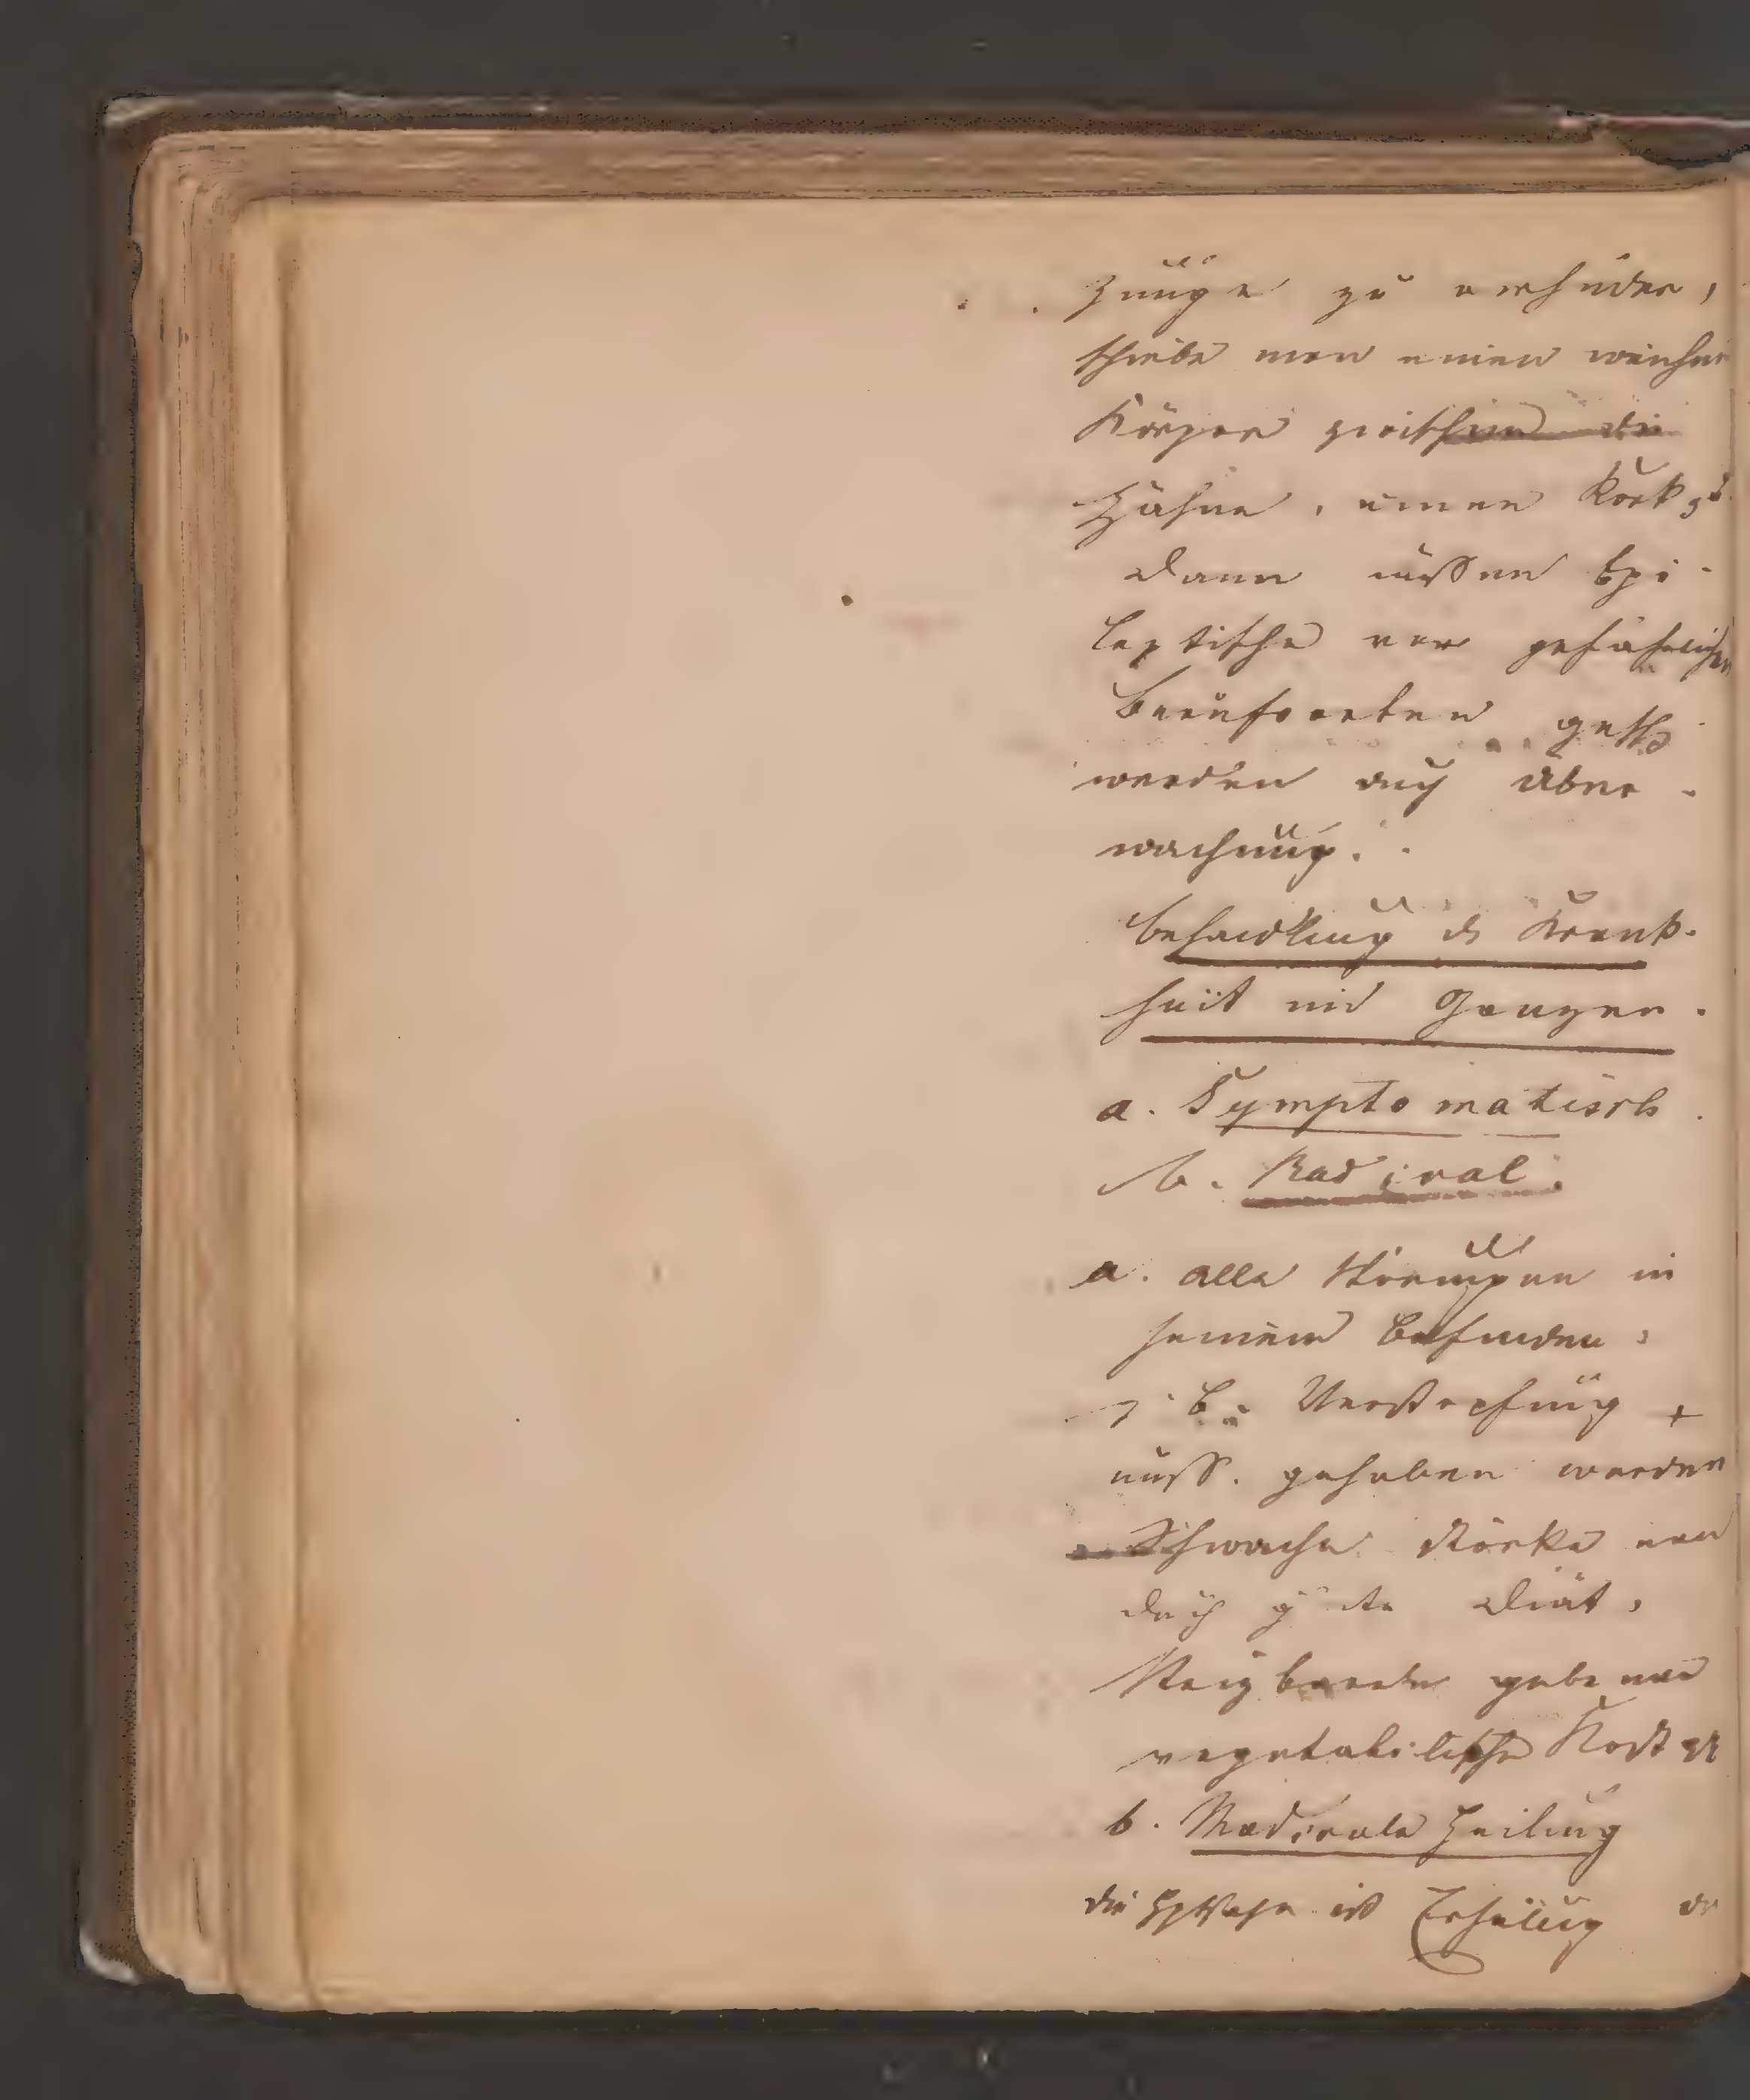 Zunge zu verhüten,
schiebe man einen weichen
Körper zwischen die
Zähne, einen Kork
Dann müssen Epi-
leptische vor gefährlichen
Berufsarten gesch
werden auch Über-
wachung.
Behandlung d Krank-
heit im Ganzen.
a. Symptomatisch.
b. Radical.
a. alle Störungen in
seinem Befinden,
z. B. Verstopfung +
muss. gehoben werden
Schwache stärke man
durch gute Diät,
Reizbaren gebe man
vegetabilische Kost
b. Radicale Heilung
die ist